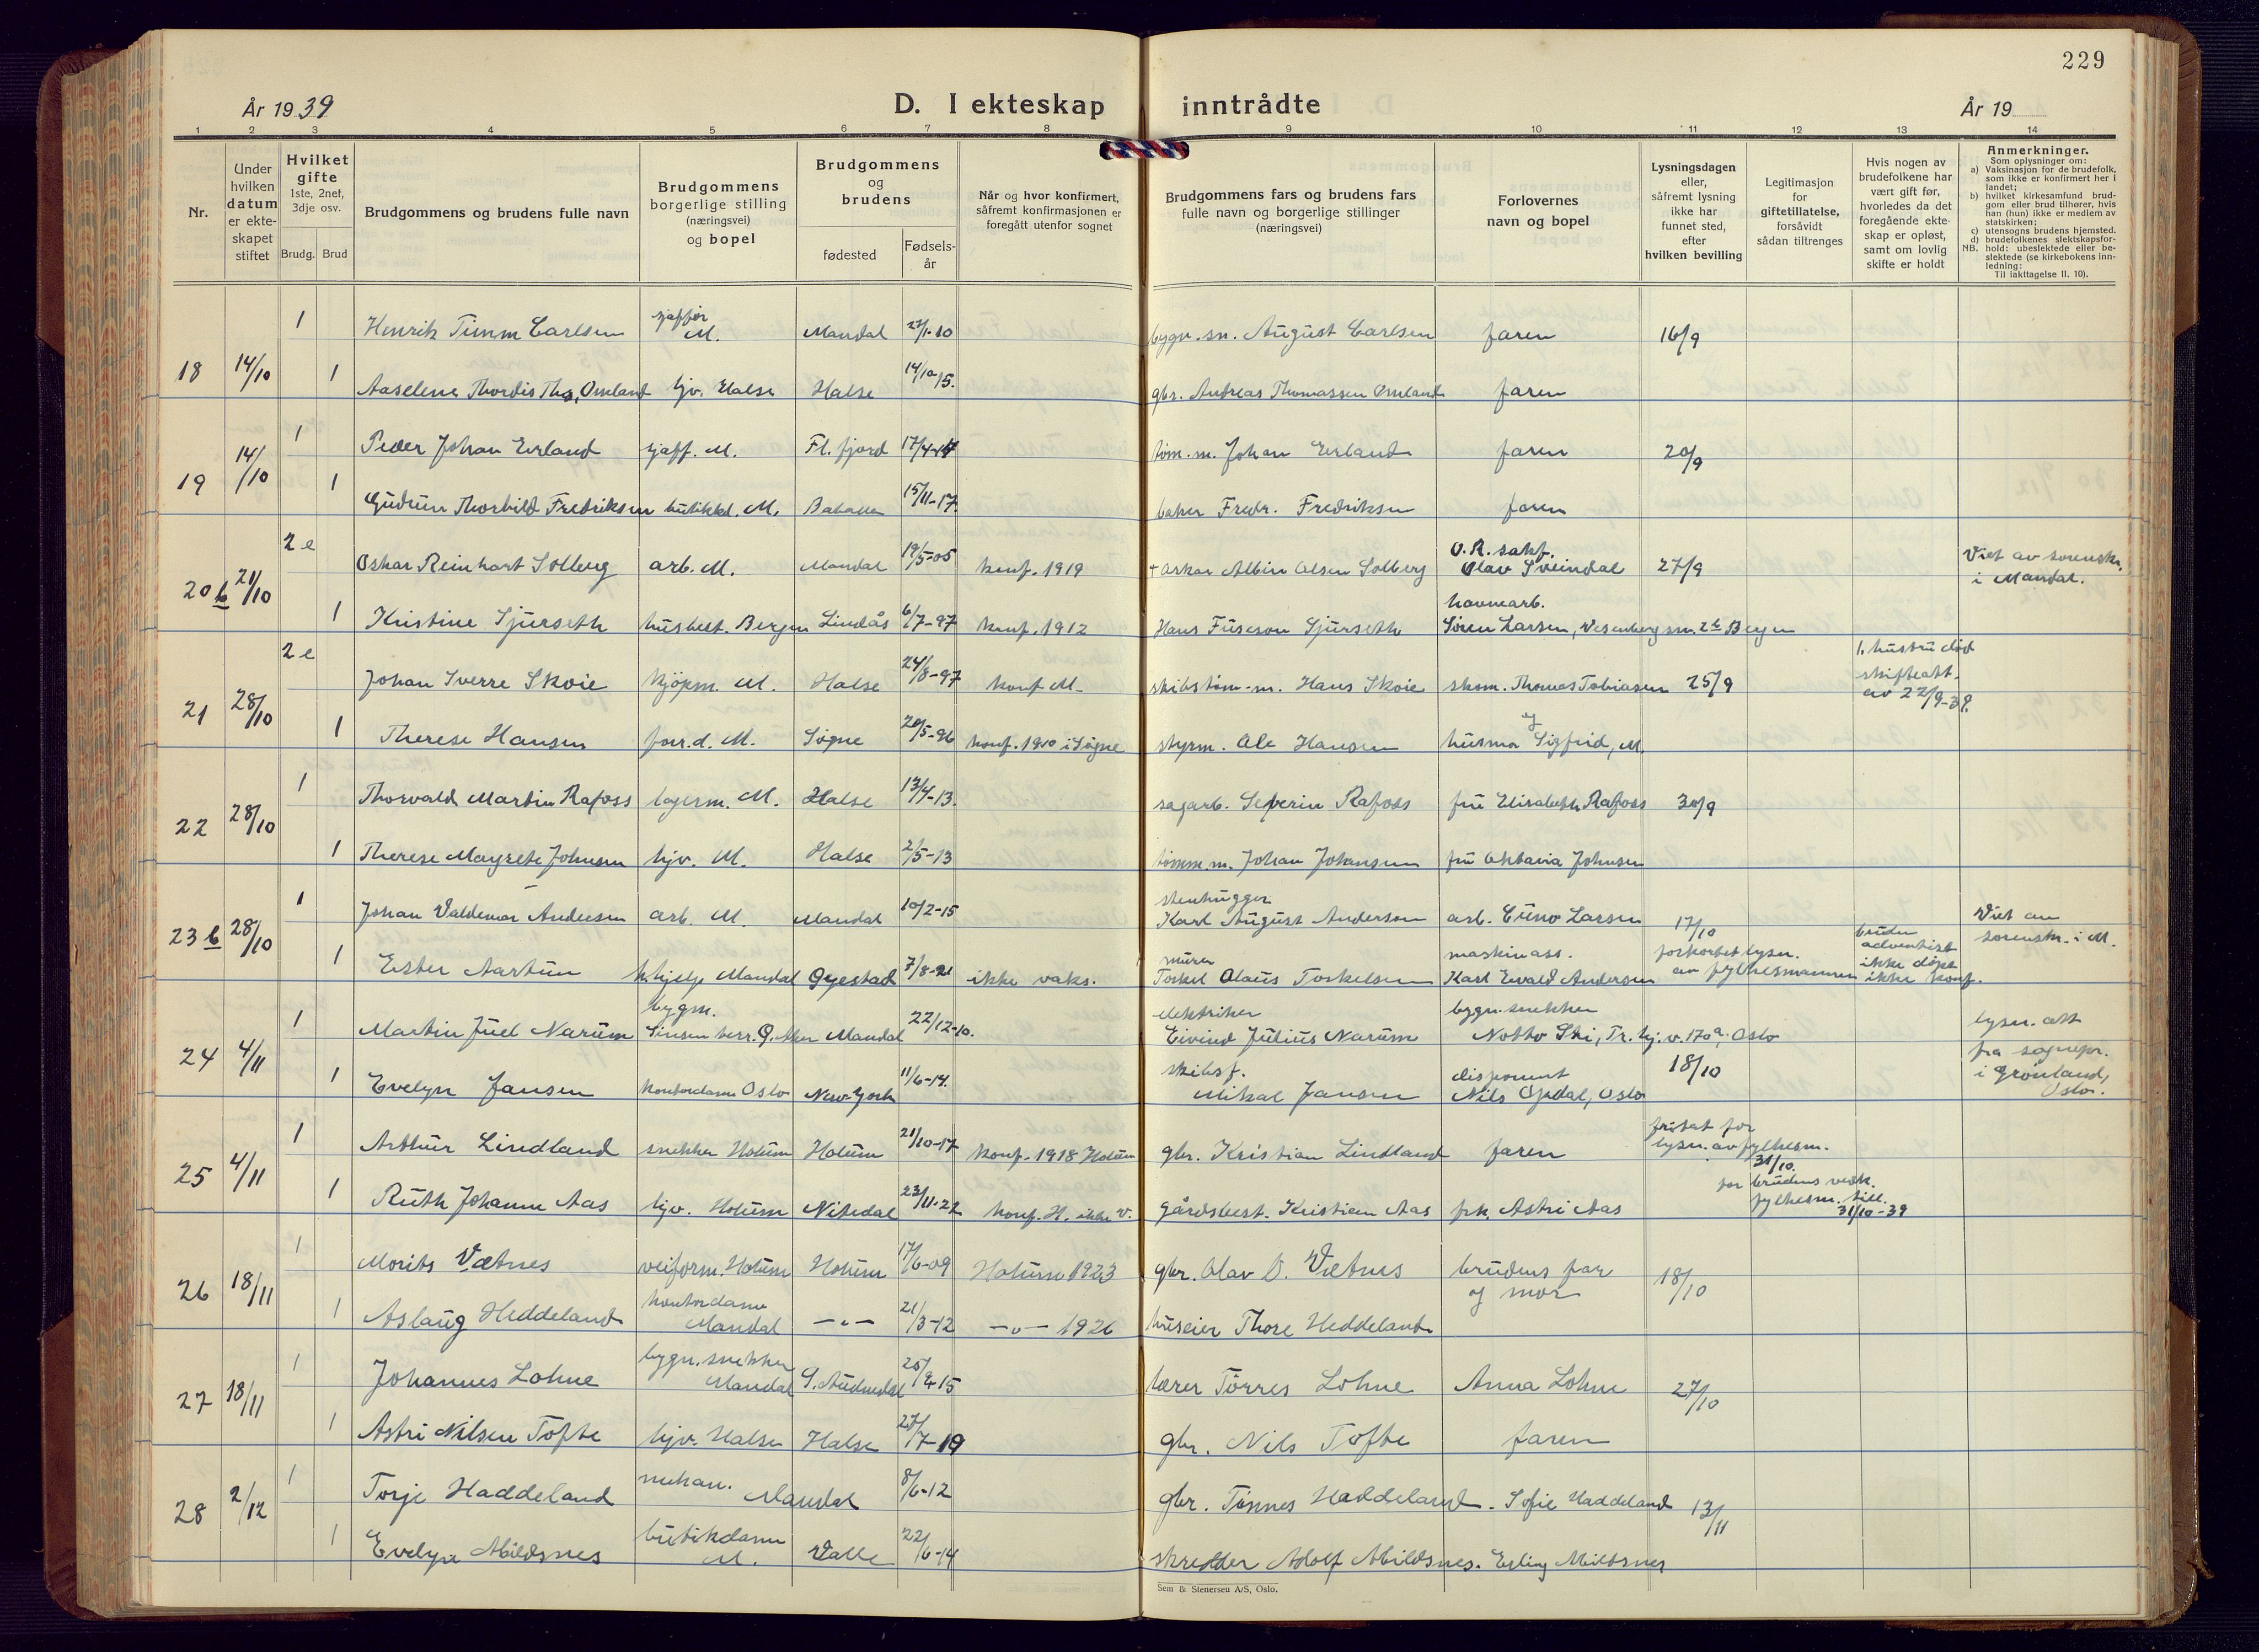 229
År 1939
D. I ekteskap inntrådte
År 19
1 2 3 4 5 6 7 8 9 10 11 12 13 14
Nr.
Under hvilken datum er ekteskapet stiftet
Hvilket gifte
1ste, 2net, 3dje osv.
Brudg. Brud
Brudgommens og brudens fulle navn
Brudgommens borgerlige stilling (næringsvei) og bopel
Brudgommens og brudens
fødested
Fødsels-år
Når og hvor konfirmert, såfremt konfirmasjonen er foregått utenfor sognet
Brudgommens fars og brudens fars fulle navn og borgerlige stillinger (næringsvei)
Forlovernes navn og bopel
Lysningsdagen eller, såfremt lysning ikke har funnet sted, efter hvilken bevilling
Legitimasjon for giftetillatelse, forsåvidt sådan tiltrenges
Hvis nogen av brudefolkene har vært gift før, hvorledes da det foregående ekteskap er opløst, samt om lovlig skifte er holdt
Anmerkninger.
Som oplysninger om:
a) Vaksinasjon for de brudefolk, som ikke er konfirmert her i landet;
b) hvilket kirkesamfund brudgom eller brud tilhører, hvis han (hun) ikke er medlem av statskirken;
c) utensogns brudens hjemsted.
d) brudefolkenes slektskapsforhold: ubeslektede eller beslektede (se kirkebokens innledning:
NB. Til iakttagelse II. 10).
18 14/10 1 Henrik Timm Carlsen sjaffør M. Mandal 27/1-10 bygn.sn. August Carlsen faren 16/9
1 Aaselene Thordis Ths. Omland hjv. Halse Halse 14/10 15. gbr. Andreas Thomassen Omland faren
19 14/10 1 Peder Johan Eirland sjaff. M. Fl.fjord 17/4-14 tøm.m. Johan Eirland faren 20/9
1 Gudrun Thorbild Fredriksen butikkd. M. 15/11-17. baker Fredr. Fredriksen faren
20 b 21/10 2 e Oskar Reinhart Solberg arb. M. Mandal 19/5-05 konf. 1919 + Oskar Albin Olsen Solberg O.R.sakf. Olav Sveindal 27/9 Viet av sorenskr. i Mandal.
1 Kristine Sjurseth husbest. Bergen Lindås 6/7-97 konf. 1912 Hans Fuseson Sjurseth havnearb. Søren Larsen, Vesenbergsm. 2b Bergen
21 28/10 2 e Johan Sverre Skoie kjøpm. M. Halse 24/8-97 konf M. skibstøm.m. Hans Skoie skom. Thomas Tobiassen 25/9 1. hustru død skifteatt. av 22/9-39.
1 Therese Hansen forr.d. M. Søgne 20/5-96 konf. 1910 i Søgne styrm. Ole Hansen og husmor Sigfrid, M.
22 28/10 1 Thorvald Martin Rafoss lagerm. M. Halse 13/4-13. sagarb. Severin Rafoss fru Elisabeth Rafoss 30/9
1 Therese Margrete Johnsen hjv. M. Halse 2/5-13 tømm.m. Johan Johansen fru Oktavia Johnsen
23 b 28/10 1 Johan Valdemar Andersen arb. M. Mandal 10/2-15 stenhugger Karl August Anderson arb. Euno Larsen 17/10 Viet av sorenskr. i M.
1 Ester Aartun h.hjelp Mandal Øyestad 7/8-21 ikke vaks. murer Torkel Olaus Torkelsen maskinass. Karl Ewald Andersen forkortet lysn. av fylkesmannen bruden adventist ikke døpt ikke konf.
24 4/11 1 Martin Juel Narum bygm. Sinsen terr. 9. Aker Mandal 22/12-10. elektriker Eivind Julius Narum bygn.snekker Notto Ski, Tr.hj.v. 170a, Oslo lysn. att fra sognepr. i Grønland, Oslo.
1 Evelyn Jansen kontordame Oslo New-York 11/6-14. skibsf. Mikal Jansen disponent Nils Opdal, Oslo 18/10
25 4/11 1 Arthur Lindland snekker Holum Holum 21/10-17 konf. 1918 Holum gbr. Kristian Lindland faren fritat for lysn. av fylkesm. 31/10.
1 Ruth Johanne Aas hjv. Holum Nitedal 23/11-22 konf. H. ikke v. gårdsbest. Kristian Aas frk. Astri Aas for brudens vedk. fylkesm. till. 31/10-39
26 18/11 1 Morits Vætnes veiform. Holum Holum 17/6-09 Holum 1923 gbr. Olav D. Vætnes brudens far og mor 18/10
1 Aslaug Heddeland kontordame Mandal —"— 21/3-12 —"— 1926 huseier Thore Heddeland
27 18/11 1 Johannes Lohne bygn.snekker Mandal S. Audnedal 25/2-15 lærer Tørres Lohne Anna Lohne 27/10
1 Astri Nilsen Tofte hjv. Halse Halse 27/7-19 gbr. Nils Tofte faren
28 2/12 1 Torje Haddeland mekan. Mandal 8/6-12 gbr. Tønnes Haddeland. Sofie Haddeland 13/11
1 Evelyn Mildsnes butikdame M. Valle 22/6-14 skredder Adolf Mildsnes. Erling Mildsnes
Sem & Stenersen A/S, Oslo.